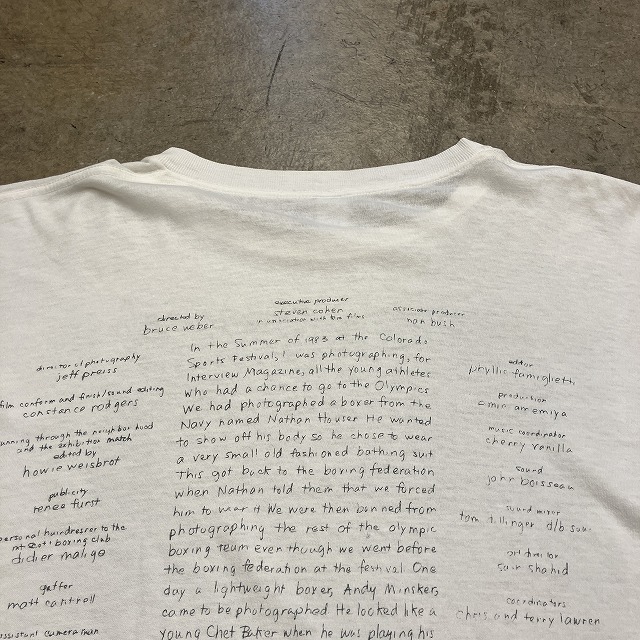 executive producer
steven cohen
in association with
films
directed by
bruce weber
associate producer
nan bush
director of photography
jeff preiss
film conform and finish/sound editing
constance rodgers
running through the neighborhood
and the exhibition match
edited by
howie weisbrot
publicity
renee furst
personal hairdresser to the
mt scott boxing club
didier malige
gaffer
matt cantrell
assistant cameraman
In the Summer of 1983 at the Colorado
Sports Festival, I was photographing, for
Interview Magazine, all the young athletes
who had a chance to go to the Olympics
We had photographed a boxer from the
Navy named Nathan Houser He wanted
to show off his body so he chose to wear
a very small old fashioned bathing suit
This got back to the boxing federation
when Nathan told them that we forced
him to wear it We were then banned from
photographing the rest of the olympic
boxing team Even though we went before
the boxing federation at the festival One
day a lightweight boxer, Andy Minsker,
came to be photographed He looked like a
young Chet Baker when he was playing his
editor
phyllis famiglietti
production
emie amemiya
music coordinator
cherry vanilla
sound
john boisseau
sound mixer
tom dillinger d/b
art director
sam shahid
coordinators
chris and terry lawren